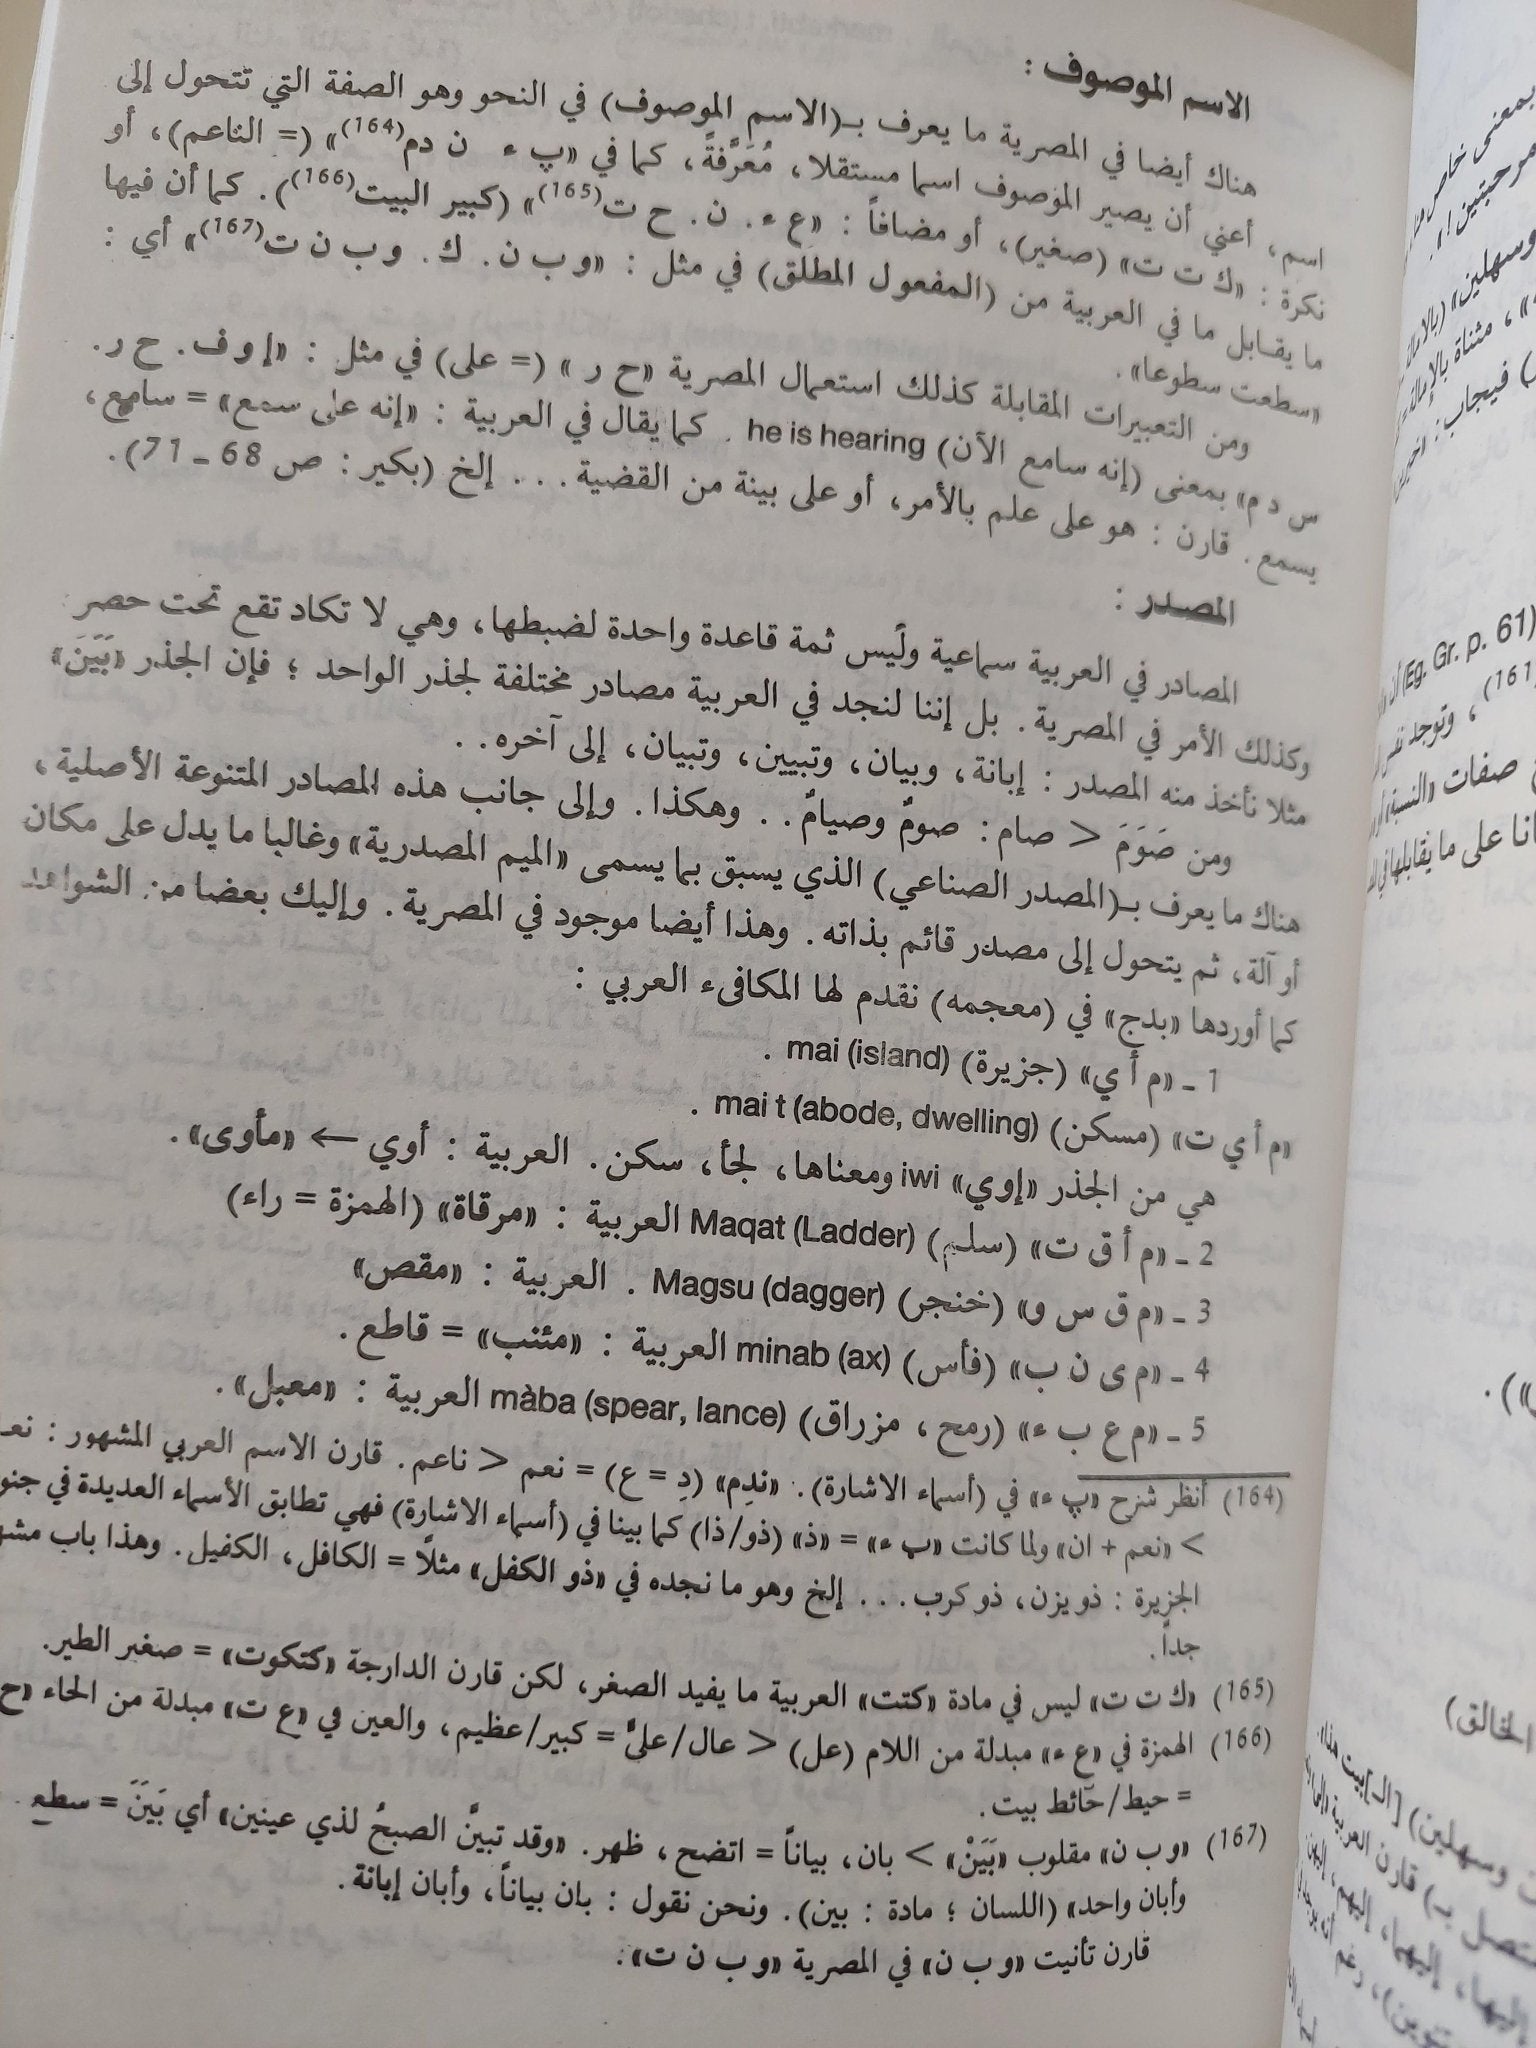 الاسم الموصوف :
هناك أيضا في المصرية ما يعرف بـ(الاسم الموصوف) في النحو وهو الصفة التي تتحول إلى
اسم، أعني أن يصير الموصوف اسما مستقلا، مُعَرَّفةً، كما في «پ ء ن دم(164)» (= الناعم)، أو
نكرة : «ك ت ت» (صغير)، أو مضافاً : «ع ء. ن. ح ت(165)» (كبير البيت(166)). كما أن فيها
ما يقابل ما في العربية من (المفعول المطلق) في مثل : «و ب ن. ك. و ب ن ت(167)» أي :
«سطعت سطوعا».
ومن التعبيرات المقابلة كذلك استعمال المصرية «ح ر» (= على) في مثل : «إ و ف. ح ر.
س د م» بمعنى (إنه سامع الآن) he is hearing . كما يقال في العربية : «إنه على سمع» = سامع،
يسمع. قارن : هو على علم بالأمر، أو على بينة من القضية . . . إلخ (بكير : ص 68 ـ 71).
المصدر :
المصادر في العربية سماعية وليس ثمة قاعدة واحدة لضبطها، وهي لا تكاد تقع تحت حصر
وكذلك الأمر في المصرية. بل إننا لنجد في العربية مصادر مختلفة لجذر الواحد ؛ فإن الجذر «بَيَنَ»
مثلا نأخذ منه المصدر : إبانة، وبيان، وتبيين، وتبيان، إلى آخره. .
ومن صَوَمَ > صام : صومٌ وصيامٌ. . وهكذا. وإلى جانب هذه المصادر المتنوعة الأصلية،
هناك ما يعرف بـ(المصدر الصناعي) الذي يسبق بما يسمى «الميم المصدرية» وغالبا ما يدل على مكان
أو آلة، ثم يتحول إلى مصدر قائم بذاته. وهذا أيضا موجود في المصرية. وإليك بعضا من الشواهد
كما أوردها «بدج» في (معجمه) نقدم لها المكافىء العربي :
1 ـ «م أ ي» (جزيرة) mai (island) .
«م أ ي ت» (مسكن) mai t (abode, dwelling) .
هي من الجذر «إوي» iwi ومعناها، لجأ، سكن. العربية : أوي ← «مأوى».
2 ـ «م أ ق ت» (سلم) Maqat (Ladder) العربية : «مرقاة» (الهمزة = راء)
3 ـ «م ق س و» (خنجر) Magsu (dagger) . العربية : «مقص»
4 ـ «م ى ن ب» (فأس) minab (ax) العربية : «مئنب» = قاطع.
5 ـ «م ع ب ء» (رمح، مزراق) màba (spear, lance) العربية : «معبل».
(164) أنظر شرح «پ ء» في (أسماء الاشارة). «ندِم» (دِ = ع) = نعم > ناعم. قارن الاسم العربي المشهور : نعـ
< «نعم + ان» ولما كانت «پ ء» = «ذ» (ذو/ذا) كما بينا في (أسماء الاشارة) فهي تطابق الأسماء العديدة في جنو
الجزيرة : ذو يزن، ذو كرب. . . إلخ وهو ما نجده في «ذو الكفل» مثلاً = الكافل، الكفيل. وهذا باب
جداً.
(165) «ك ت ت» ليس في مادة «كتت» العربية ما يفيد الصغر، لكن قارن الدارجة «كتكوت» = صغير الطير.
(166) الهمزة في «ع ء» مبدلة من اللام (عل) > عال/عليّ = كبير/عظيم، والعين في «ع ت» مبدلة من الحاء «ح
= حيط/حائط بيت.
(167) «و ب ن» مقلوب «بَيَنْ» < بان، بياناً = اتضح، ظهر. «وقد تبيَّن الصبحُ لذي عينين» أي بَيَنَ = سطع.
وأبان واحد» (اللسان ؛ مادة : بين). ونحن نقول : بان بياناً، وأبان إبانة.
قارن تأنيت «و ب ن» في المصرية «و ب ن ت».
بمعنى خاص
(Eg. Gr. p. 61)
(161)، وتوجد نفس
صفات «النسبة»
على ما يقابلها في
الخالق)